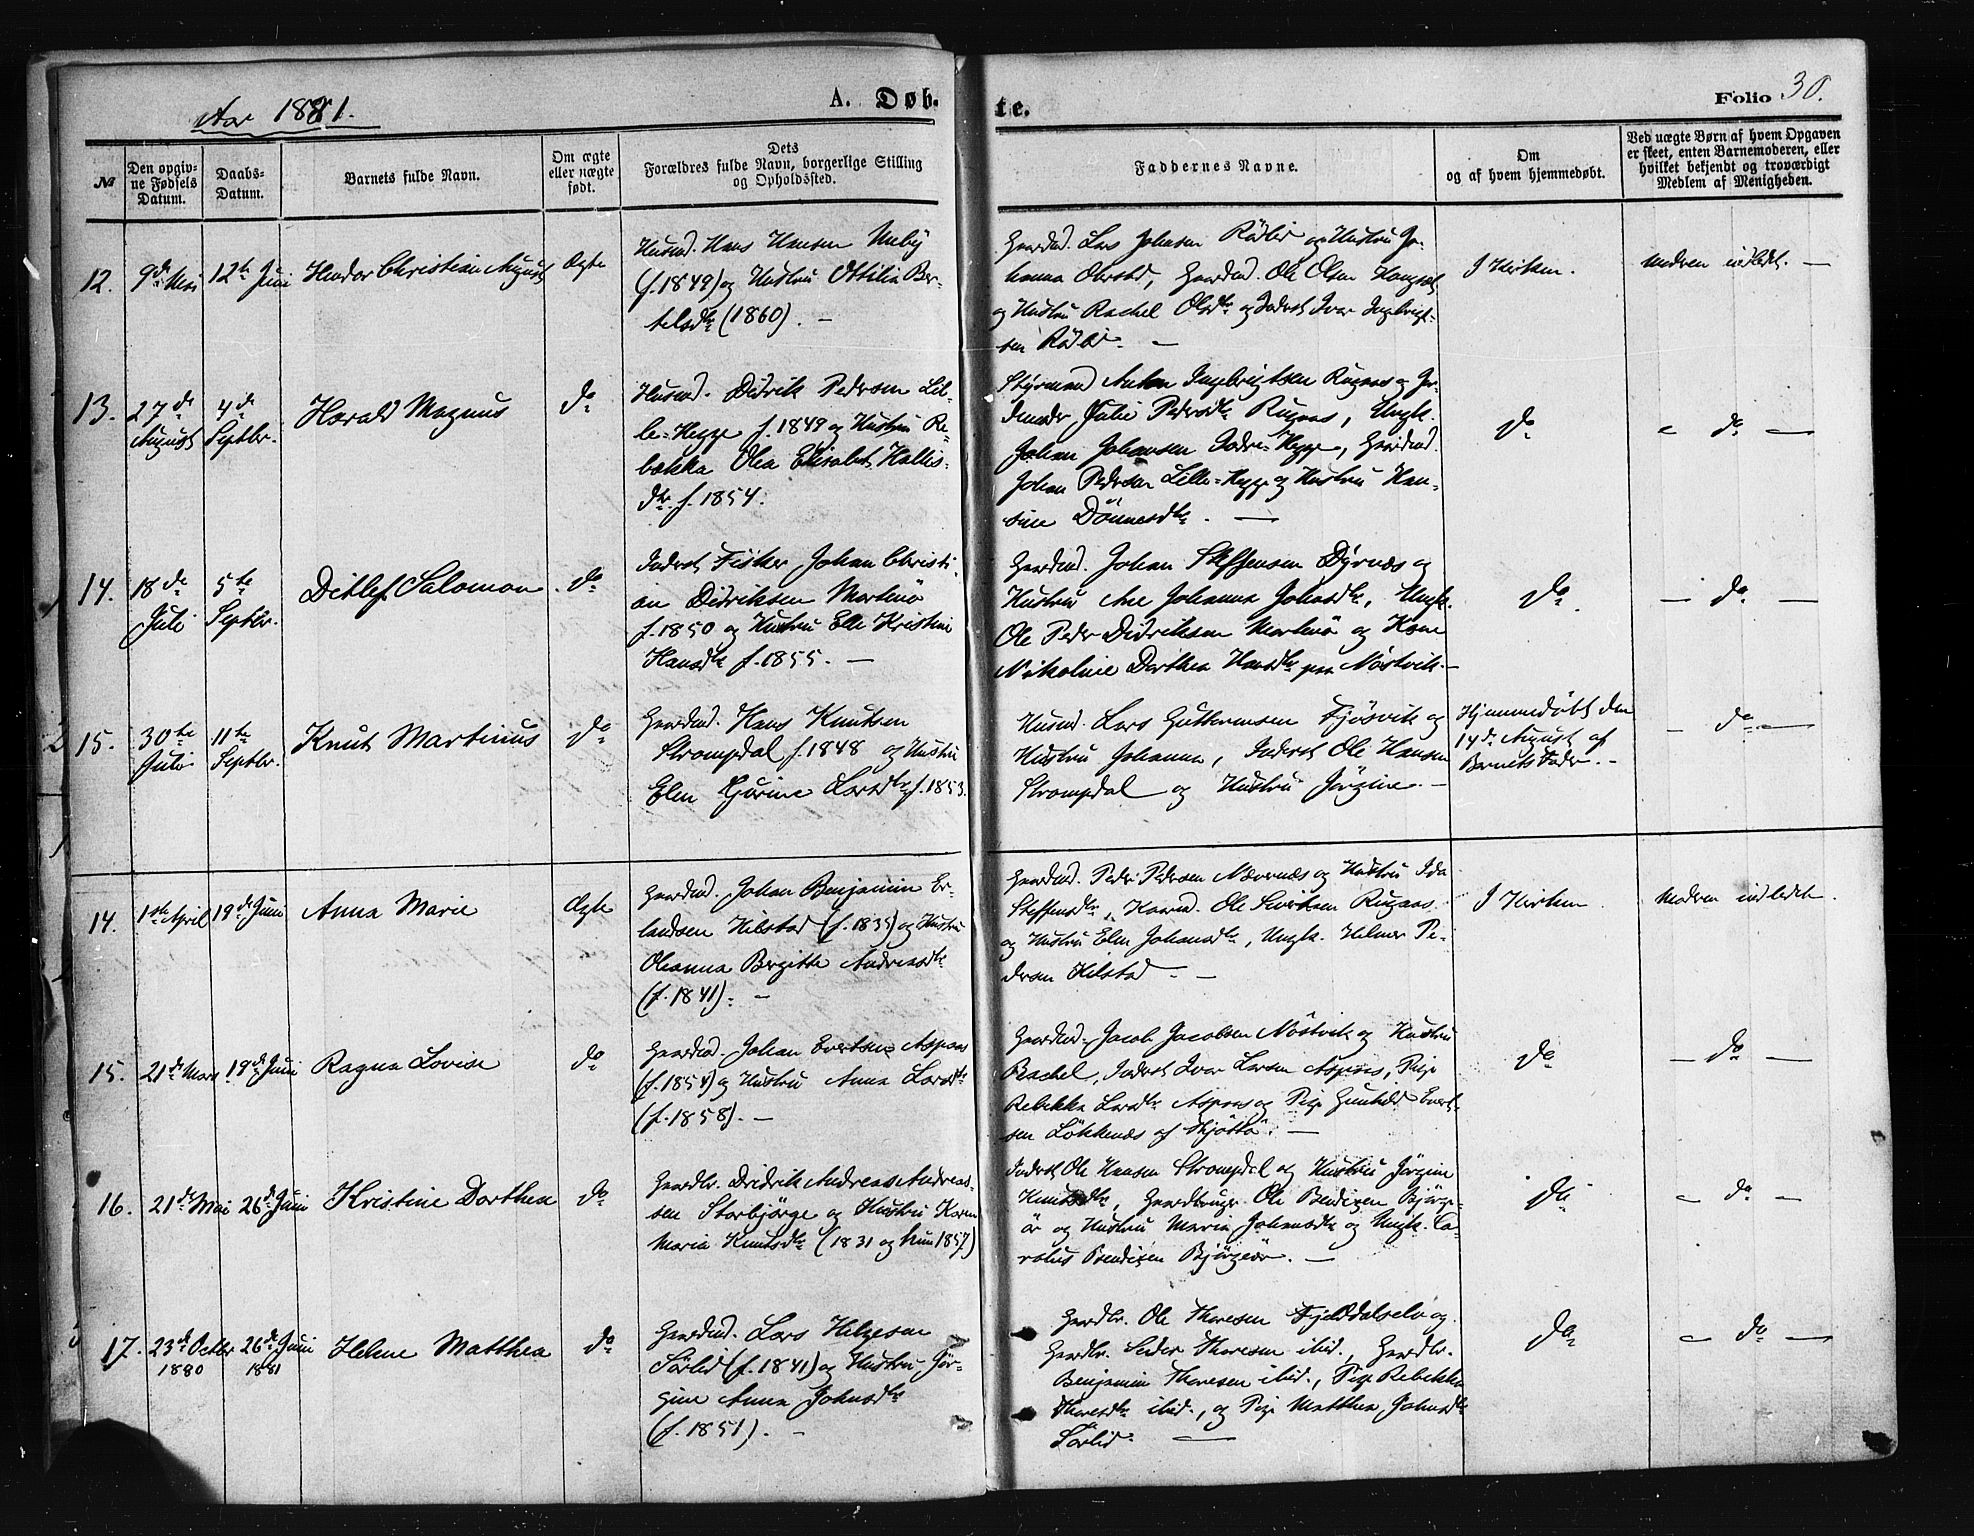 Aar 1881.
A. Døb-
te.
Folio 30.
№
Den opgiv-
ne Fødsels
Datum.
Daabs-
Datum.
Barnets fulde Navn.
Om ægte
eller uægte
født.
Dets
Forældres fulde Navn, borgerlige Stilling
og Opholdssted.
Faddernes Navne.
Om
og af hvem hjemmedøbt.
Ved uægte Børn af hvem Opgaven
er skeet, enten Barnemoderen, eller
hvilket bekjendt og troværdigt
Medlem af Menigheden.
12.
9de Mai
12te Juni
Christian August
Ægte
Husmd. Hans Hansen
(f. 1849) og Hustru Ottilia Ber-
telsdtr (1860). —
Gaardmd. Lars Johnsen Rölid og Hustru Jo-
hanna Olersdr, Gaardmd. Ole Olsen
og Hustru Rachel Olsdtr og Inderst Ivar Ingebrigt-
sen Rölid. —
I Kirken.
Modren indledet. —
13.
27de
August
4de
Septbr.
Harald Magnus
do
Husmd. Didrik Pedersen Lil-
le-Hegge f. 1849 og Hustru Re-
bekka Olea Elisabet Hallis-
dtr. f. 1854.
Styrmand Anton Ingebrigtsen Rugaas og Jor-
demoder Julie Pedersdtr Rugaas, Ungk.
Johan Johansen Indre-Hegge, Gaardmd.
Johan Pedersen Lille-Hegge og Hustru Han-
sine Dönnesdtr. —
do
— do —
14.
18de
Juli
5te
Septbr.
Ditlef Salomon
do
Inderst Fisker Johan Christi-
an Didriksen Mortenö
f. 1850 og Hustru Elle Kristine
Hansdtr f. 1855. —
Gaardmd. Johan Steffensen Dyrnæs og
Hustru Ane Johanna Johnsdtr, Ungk.
Ole Peder Didriksen Mortenö og Kone
Nikoline Dorthea Hansdtr paa Nöstvik. —
do
— do —
15.
30te
Juli
11te
Septbr.
Knut Martinus
do
Gaardmd. Hans Knutsen
Strompdal f. 1848 og Hustru
Elen Gjurine Larsdtr f. 1853.
Husmd. Lars Guttormsen Fjösvik og
Hustru Johanna, Inderst Ole Hansen
Strompdal og Hustru Jörgine. —
Hjemmedöbt den
14de August af
Barnets Fader. —
— do —
14.
1ste April
19de Juni
Anna Marie
Ægte
Gaardmd. Johan Benjamin Er-
landsen Hilstad (f. 1835) og Hustru
Oleanna Bergitte Andreasdtr
(f. 1841). —
Gaardmd. Peder Pedersen Nævernæs og Hustru Ida
Steffensdtr, Ole Sivertsen Rugaas
og Hustru Elen Johansdtr, Ungk. Helmer Pe-
dersen Hilstad. —
I Kirken
Modren indledet.
15.
21de Mars
19de Juni
Ragna Lovise
do
Gaardmd. Johan Evertsen Aspaas
(f. 1854) og Hustru Anna Larsdtr
(f. 1858). —
Gaardmd. Jacob Jacobsen Nöstvik og Hustru
Rachel, Inderst Ivar Larsen Aspaas, Pige
Rebekka Larsdtr Aspaas og Pige Gunhild Evert-
sen Lökkenæs af Tjöttö. —
do
— do —
16.
21de Mai
26de Juni
Kristine Dorthea
do
Gaardbr. Didrik Andreas Andreas-
sen Storbjörge og Hustru Karen
Maria Knutsdtr (1831 og hun 1857)
Inderst Ole Hansen Strompdal og Hustru Jörgine
Knutsdtr, Gaardbruger Ole Bendixen Björge-
ör og Hustru Maria Johansdtr og Ungk. Ca-
rolus Bendixen Björgeör. —
do
— do —
17.
23de Octbr
1880
26de Juni
1881
Helene Matthea
do
Gaardmd. Lars Helgesen
Sörlid (f. 1841) og Hustru Jör-
gine Anna Johnsdtr
(f. 1851). —
Gaardbr. Ole Thoresen Fjelddalselv og
Gaardbr. Peder Thoresen ibid., Gaardbr.
Benjamin Thoresen ibid., Pige Rebekka
Thoresdtr ibid., og Pige Matthea Johnsdtr
Sörlid. —
do
— do —